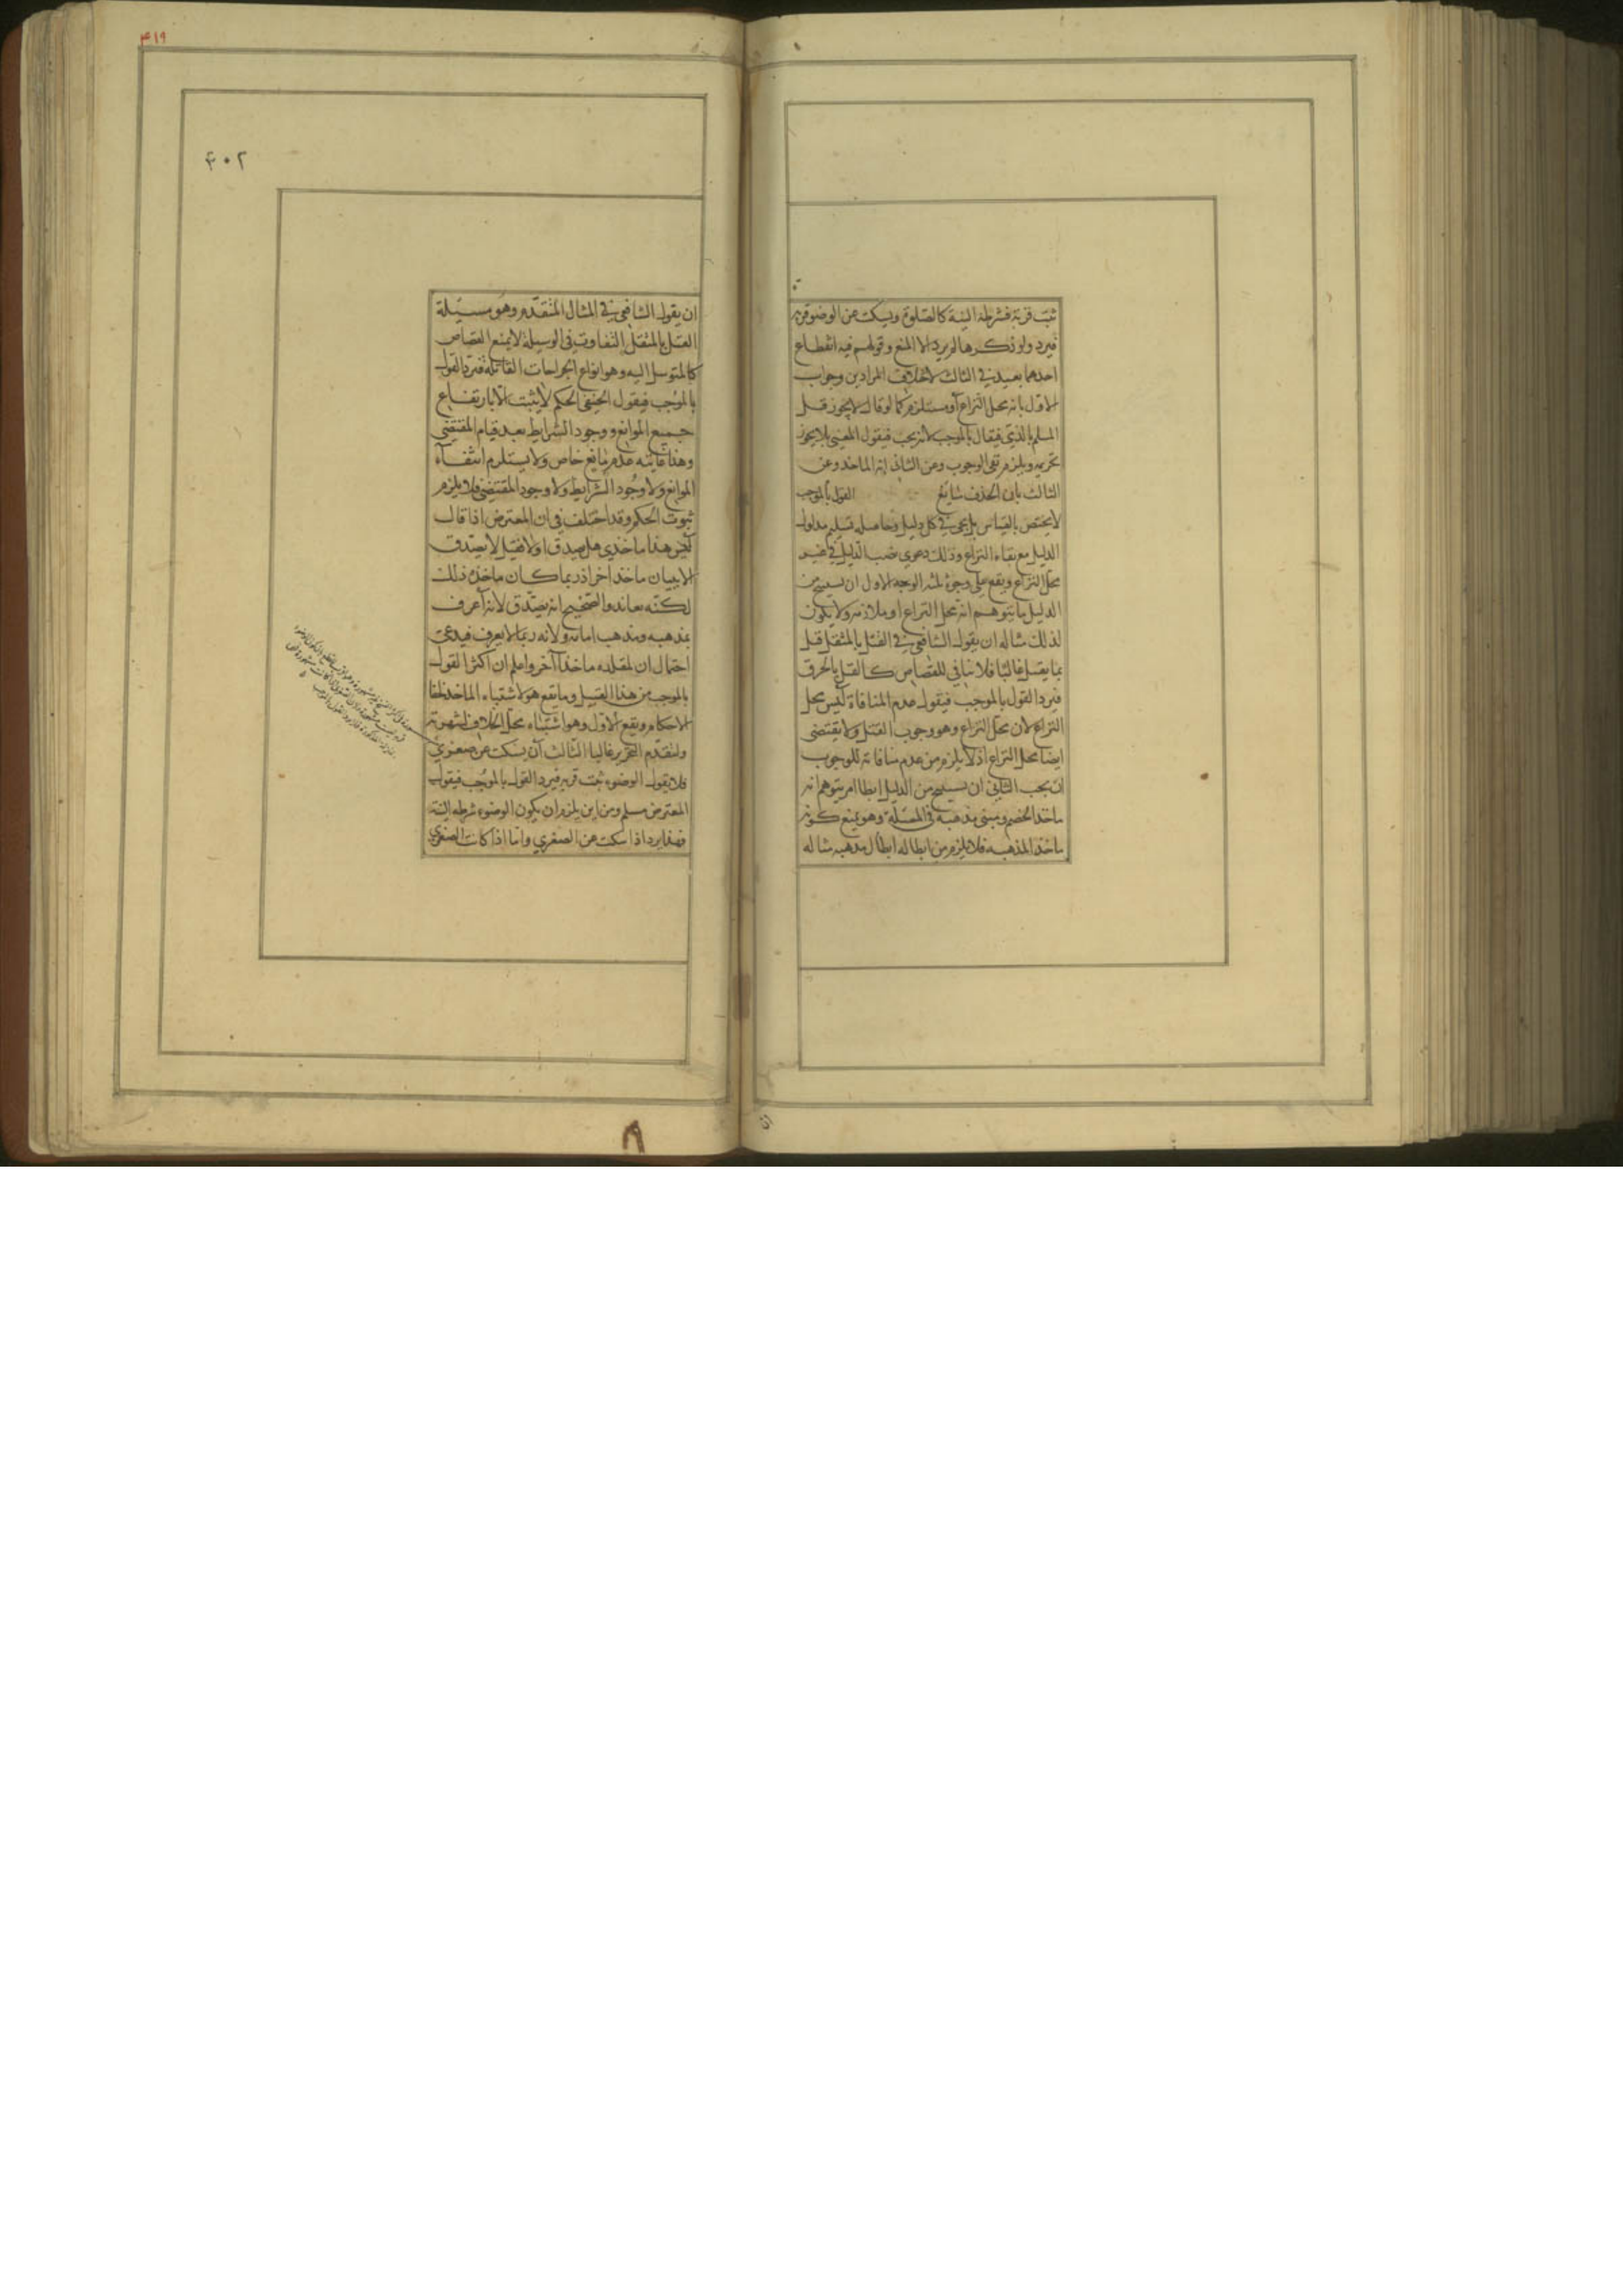 ثبت قربة فشرطه النية كالصلوة ويسكت عن الوضوء قربة
فيرد ولو ذكرها لم يرد الا المنع وقولهم فيه انقطاع
احدهما بعيد في الثالث لاختلاف المرادين وجواب
الاول بانه محل النزاع أو مستلزم كما لو قال لا يجوز قتل
المسلم بالذمي فيقال بالموجب لانه يجب فيقول المعني بلا يجوز
تحريمه ويلزم نفي الوجوب وعن الثاني انه الماخذ وعن
الثالث بان الحذف شائع القول بالموجب
لا يختص بالقياس بل يجئ في كل دليل وحاصله تسليم مدلول
الدليل مع بقاء النزاع وذلك دعوى نصب الدليل في غير
محل النزاع ويقع على وجوه ثلثة الوجه الاول ان يستنتج من
الدليل ما يتوهم انه محل النزاع او ملازمه ولا يكون
لذلك مثاله ان يقول الشافعي في القتل بالمثقل قتل
بما يقتل غالبا فلا ينافي للقصاص كالقتل بالحرق
فيرد القول بالموجب فيقول عدم المنافاة ليس محل
النزاع لان محل النزاع وهو وجوب القتل ولا يقتضى
ايضا محل النزاع اذ لا يلزم من عدم منافاته للوجوب
ان يجب الثاني ان يستنتج من الدليل ابطال امر يتوهم انه
ماخذ الخصم ومبنى مذهبه في المسئلة وهو يمنع كونه
ماخذا لمذهبه فلا يلزم من ابطاله ابطال مذهبه مثاله
ان
٤١٩
٣٠٢
ان يقول الشافعي في المثال المتقدم وهو مسئلة
القتل بالمثقل التفاوت في الوسيلة لا يمنع القصاص
كالمتوسل اليه وهو انواع الجراحات القاتلة فيرد القول
بالموجب فيقول الحنفي الحكم لا يثبت الا بارتفاع
جميع الموانع ووجود الشرايط بعد قيام المقتضى
وهذا غايته عدم مانع خاص ولا يستلزم انتفاء
الموانع ولا وجود الشرايط ولا وجود المقتضى فلا يلزم
ثبوت الحكم وقد اختلف في ان المعترض اذا قال
ليس هذا ماخذي هل يصدق او لا فقيل لا يصدق
الا ببيان ماخذ اخر اذ ربما كان ماخذه ذلك
لكنه يعاند والصحيح انه يصدق لانه أعرف
بمذهبه ومذهب امامه ولانه ربما لا يعرف فيدعى
احتمال ان لمقلده ماخذا آخر واعلم ان اكثر القول
بالموجب من هذا القبيل وما يقع هو لاشتباه الماخذ لخفا
الاحكام ويقع الاول وهو اشتباه محل الخلاف لشهرته
ولتقدم التحرير غالبا الثالث أن يسكت عن صغرى
فلا يقول الوضوء ثبت قربة فيرد القول بالموجب فيقول
المعترض مسلم ومن اين يلزم ان يكون الوضوء شرطه النية
فهذا يرد اذا سكت عن الصغرى واما اذا كانت الصغرى